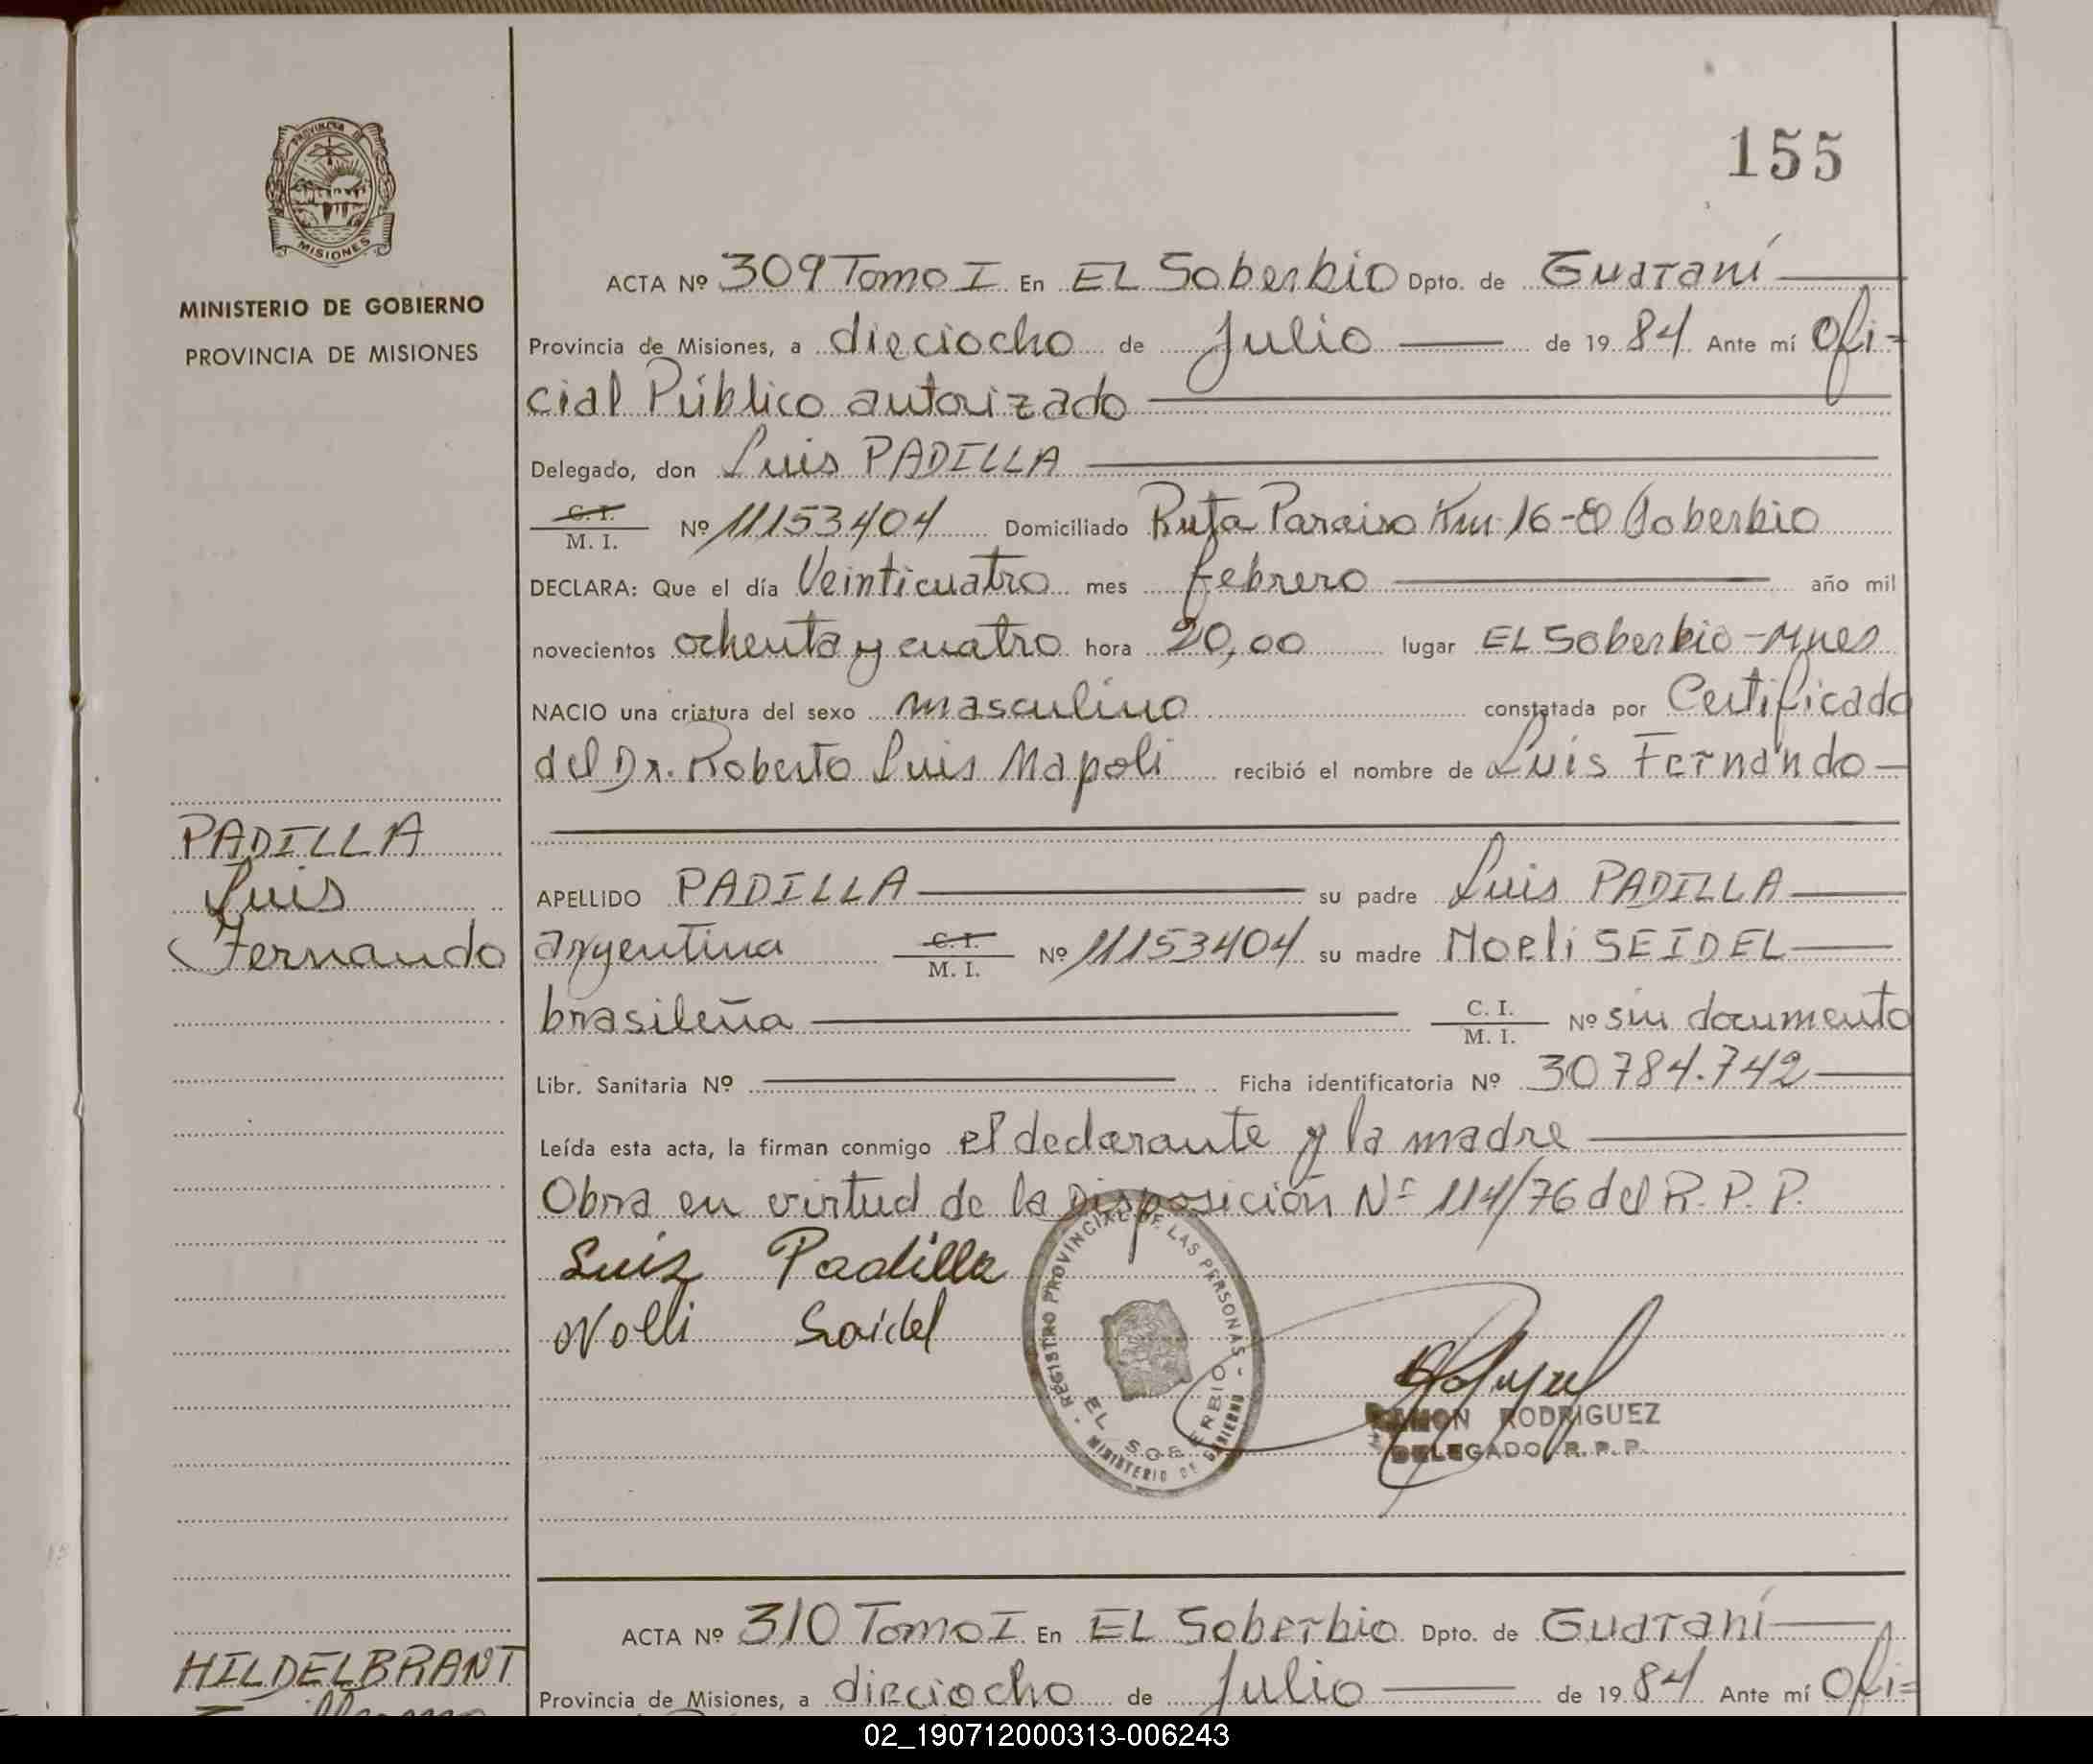 155
PROVINCIA DE
MISIONES
MINISTERIO DE GOBIERNO
PROVINCIA DE MISIONES
ACTA Nº 309 Tomo I En EL Soberbio Dpto. de Guaraní
Provincia de Misiones, a dieciocho de Julio de 19 84 Ante mí Ofi-
cial Público autorizado
Delegado, don Luis PADILLA
C. I.
M. I. Nº 11153404 Domiciliado Ruta Paraiso Km 16-El Soberbio
DECLARA: Que el día Veinticuatro mes febrero año mil
novecientos ochenta y cuatro hora 20,00 lugar EL Soberbio-Mnes
NACIO una criatura del sexo masculino constatada por Certificado
del Dr. Roberto Luis Napoli recibió el nombre de Luis Fernando
PADILLA
Luis
Fernando
APELLIDO PADILLA su padre Luis PADILLA
argentina C. I.
M. I. Nº 11153404 su madre Noeli SEIDEL
brasileña C. I.
M. I. Nº sin documento
Libr. Sanitaria Nº Ficha identificatoria Nº 30784.742
Leída esta acta, la firman conmigo el declarante y la madre
Obra en virtud de la Disposición Nº 114/76 del R. P. P.
Luis Padilla
Nolli Saidel
REGISTRO PROVINCIAL DE LAS PERSONAS - MINISTERIO DE GOBIERNO -
EL SOBERBIO
RAMON RODRIGUEZ
DELEGADO R. P. P.
ACTA Nº 310 Tomo I En EL Soberbio Dpto. de Guaraní
HILDELBRANT
Provincia de Misiones, a dieciocho de Julio de 19 84 Ante mí Ofi=
02_190712000313-006243